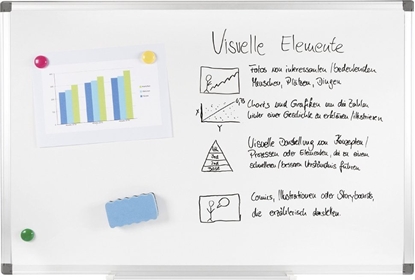 Visuelle Elemente
Fotos von interessanten/bedeutenden
Menschen, Plätzen, Dingen
Charts und Grafiken um die Zahlen
hinter einer Geschichte zu erklären/illustrieren
Y
Visuelle Darstellung von Konzepten/
Prozessen oder Elementen, die zu einem
schnelleren/besseren Verständnis führen
Comics, Illustrationen oder Storyboards,
die erzählerisch darstellen.